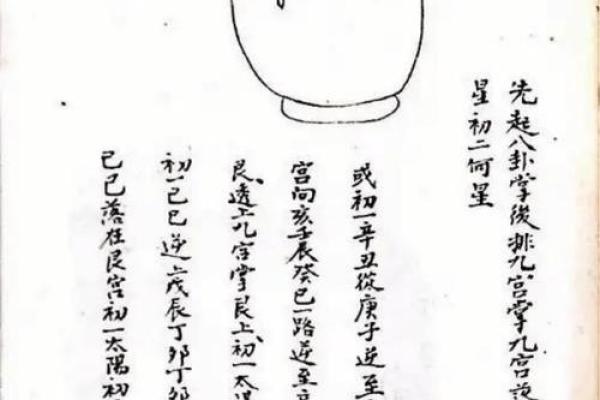 先起八卦掌後排九宫掌九宫設
星初二何星
或初一辛丑從庚子逆至
宫向亥壬辰癸巳一路逆至
艮透上九宫掌艮上初一太
初一己巳逆上戊辰丁卯丁卯
己巳落在艮宫初一太陽初